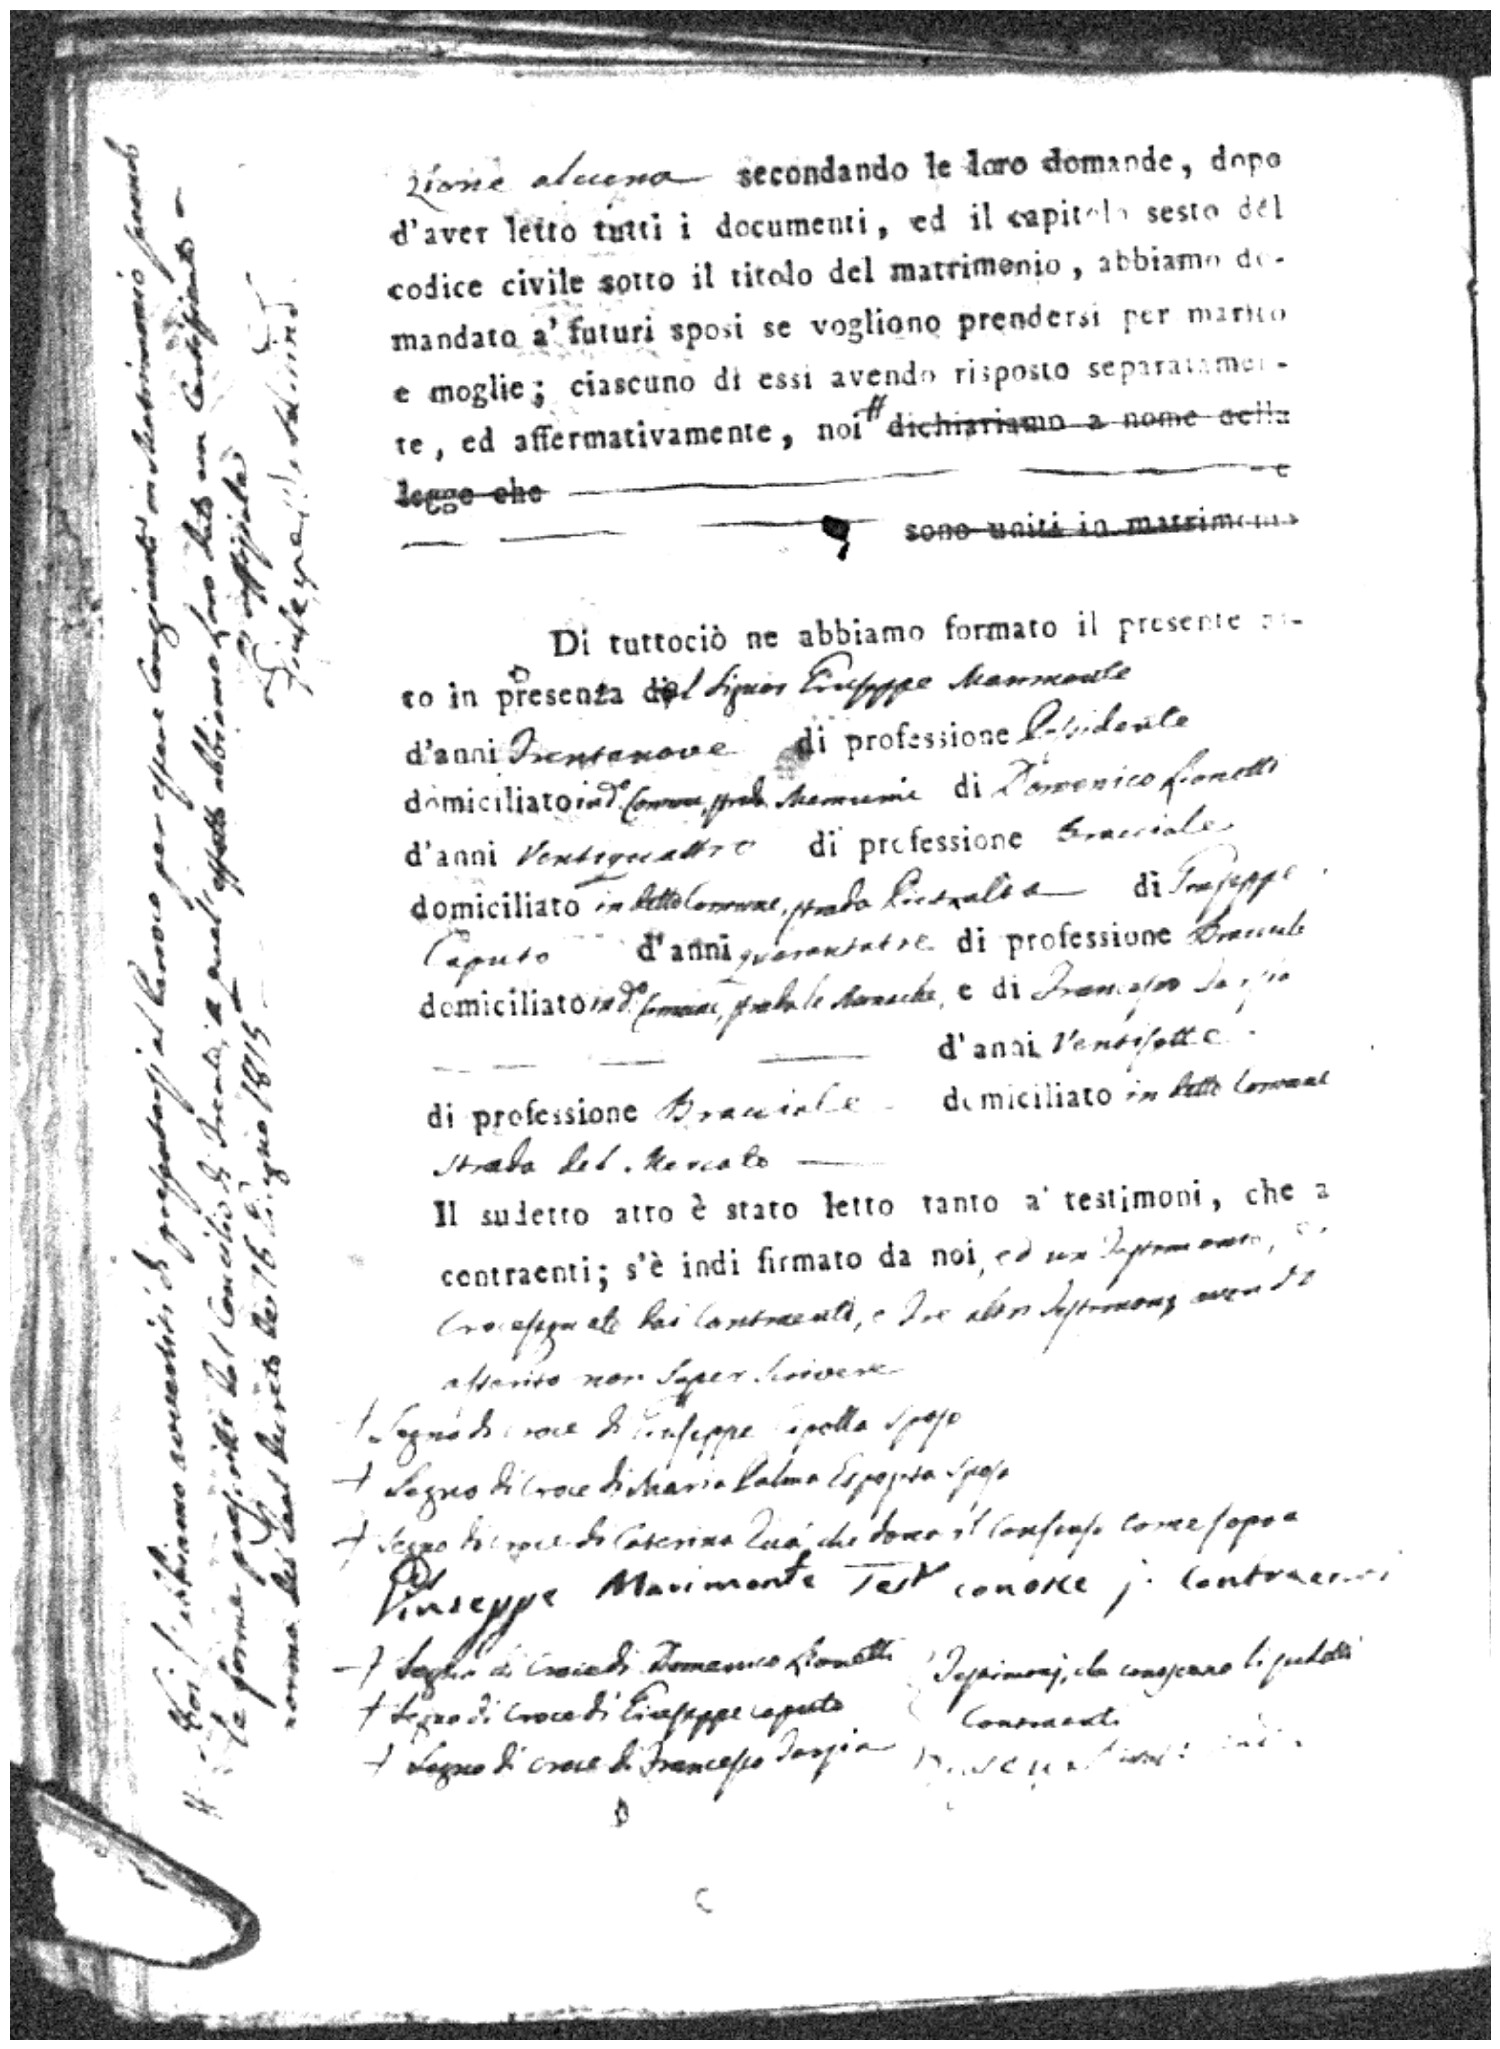 zione alcuna secondando le loro domande, dopo
d'aver letto tutti i documenti, ed il capitolo sesto del
codice civile sotto il titolo del matrimonio, abbiamo do-
mandato a' futuri sposi se vogliono prendersi per marito
e moglie; ciascuno di essi avendo risposto separatamen-
te, ed affermativamente, noi # dichiariamo a nome della
legge che e
sono uniti in matrimonio
Di tuttociò ne abbiamo formato il presente at-
to in presenza del Signor Giuseppe Marimonte
d'anni Trentanove di professione Possidente
domiciliato in d.o Comune, strada di Domenico Lionetti
d'anni Ventiquattro di professione Bracciale
domiciliato in detto Comune, strada Pietralta di Giuseppe
Caputo d'anni quarantatre di professione Bracciale
domiciliato in d.o Comune, strada le Monache, e di Francesco Tarsia
d'anni Ventisette
di professione Bracciale domiciliato in detto Comune
strada del Mercato
Il sudetto atto è stato letto tanto a' testimoni, che a
contraenti; s'è indi firmato da noi, ed un Testimonio,
Crocesegnato dai Contraenti, e Tre altri Testimonj avendo
asserito non saper scrivere
+ Segno di croce di Giuseppe Cipolla sposo
+ Segno di Croce di Maria Palma Esposita sposa
+ Segno di croce di Caterina che dona il Consenso come sopra
Giuseppe Marimonte Test conosce i contraenti
+ Segno di Croce di Domenico Lionetti Testimonj, che conoscono li sudetti
+ Segno di Croce di Giuseppe Caputo Contraenti
+ Segno di croce di Francesco Tarsia
# Noi l'abbiamo avvertiti di presentarsi al Parroco per essere Congiunti in Matrimonio secondo
le forme prescritte dal Concilio di Trento, a quale effetto abbiamo loro dato un Certificato a
norma del Real Decreto de' 16 Giugno 1815
L'uffiziale